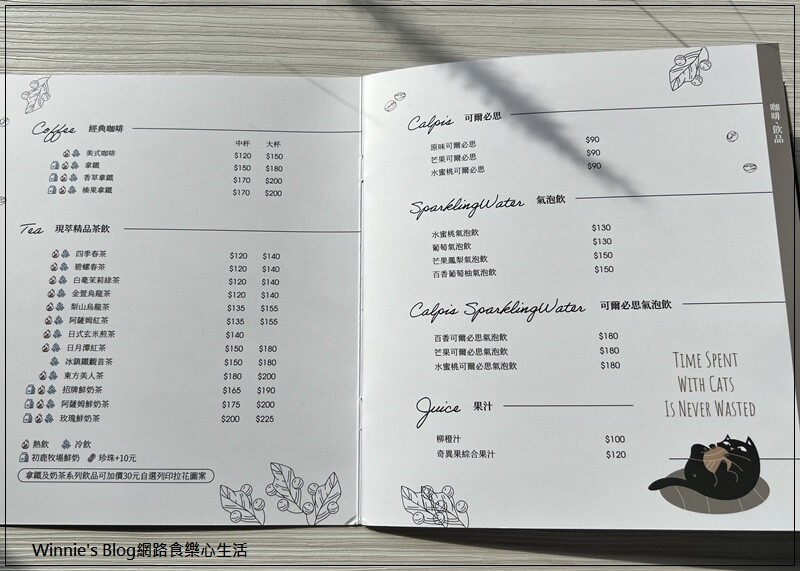 Coffee 經典咖啡
中杯 大杯
美式咖啡 $120 $150
拿鐵 $150 $180
香草拿鐵 $170 $200
榛果拿鐵 $170 $200
Tea 現萃精品茶飲
四季春茶 $120 $140
碧螺春茶 $120 $140
白毫茉莉綠茶 $120 $140
金萱烏龍茶 $120 $140
梨山烏龍茶 $135 $155
阿薩姆紅茶 $135 $155
日式玄米煎茶 $140
日月潭紅茶 $150 $180
冰鎮鐵觀音茶 $150 $180
東方美人茶 $180 $200
招牌鮮奶茶 $165 $190
阿薩姆鮮奶茶 $175 $200
玫瑰鮮奶茶 $200 $225
熱飲 冷飲
初鹿牧場鮮奶 珍珠+10元
拿鐵及奶茶系列飲品可加價30元自選列印拉花圖案
Calpis 可爾必思
原味可爾必思 $90
芒果可爾必思 $90
水蜜桃可爾必思 $90
Sparkling Water 氣泡飲
水蜜桃氣泡飲 $130
葡萄氣泡飲 $130
芒果鳳梨氣泡飲 $150
百香葡萄柚氣泡飲 $150
Calpis Sparkling Water 可爾必思氣泡飲
百香可爾必思氣泡飲 $180
芒果可爾必思氣泡飲 $180
水蜜桃可爾必思氣泡飲 $180
Juice 果汁
柳橙汁 $100
奇異果綜合果汁 $120
TIME SPENT
WITH CATS
IS NEVER WASTED
咖啡、飲品
Winnie's Blog網路食樂心生活